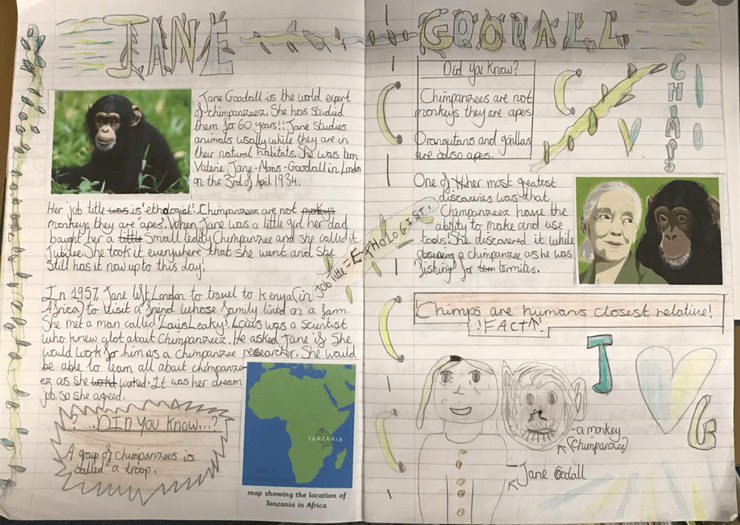 JANE GOODALL
Jane Goodall is the world expert
of chimpanzeez. She has studied
them for 60 years!! Jane Studies
animals usally while they are in
their natural habitats. She was born
Valerie Jane-Morris-Goodall in London
on the 3rd of April 1934.
Her job title is 'ethologist'. Chimpanzeez are not
monkeys they are apes. When Jane was a little girl her dad
baught her a Small teddy Chimpanzee and she called it
Jubilee. She took it everywhere that she went and She
Still has it now up to this day!
In 1957, Jane left London to travel to Kenya (in
Africa) to visit a friend whose family lived on a farm.
She met a man called 'Louis Leaky'. Louis was a scientist
who knew alot about Chimpanzeez. He asked Jane if She
would work for him as a chimpanzee researcher. She would
be able to learn all about chimpanze
ez as She worked. It was her dream
job so she agreed.
? ..DID YOU KNOW...?
A group of chimpanzees is
called a troop.
TANZANIA
map showing the location of
Tanzania in Africa
Job title = ETHOLOGIST!
Did you know?
Chimpanzees are not
monkeys they are apes.
Orangutans and gorillas
are also apes.
CHIMPS
One of her most greatest
discoveries was that
Chimpanzeez have the
ability to make and use
tools. She discovered it while
observing a chimpanzee as he was
'fishing' for termites.
Chimps are humans closest relative!
!FACT
J
G
-a monkey
(Chimpanzee)
Jane Goodall